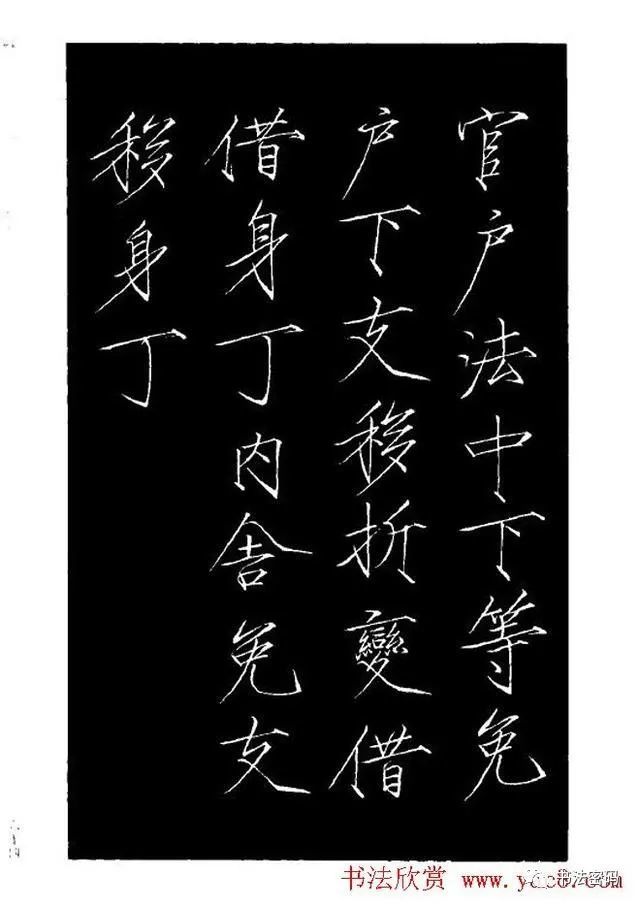 官户法中下等免
户下支移折變借
借身丁内舍免支
移身丁
书法欣赏 www.yac8.com
书法密码